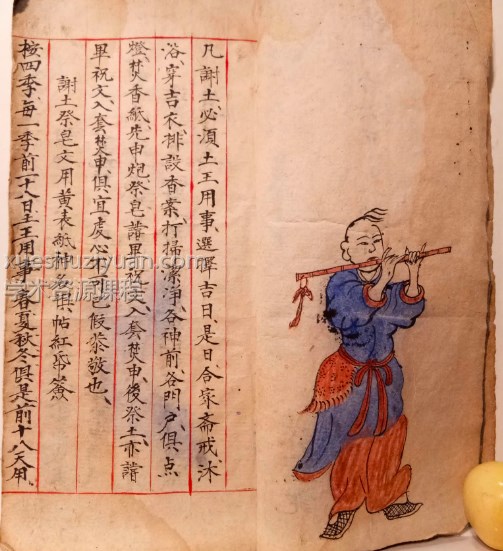 凡謝土必須土王用事、選擇吉日、是日合家齋戒、沐
浴、穿吉衣、排設香案、打掃潔淨、各神前各門戶、俱点
燈、焚香紙、先申炮、祭皂諳畢祝文、入套焚申、後祭土、亦諳
畢祝文、入套焚申、俱宜虔心、不可假恭敬也、
謝土祭皂文用黃表紙神名俱帖紅帋簽
按四季、每一季前一十八日土王用事、春夏秋冬俱是前十八天用
xueshuziyuan.com
学术资源课程